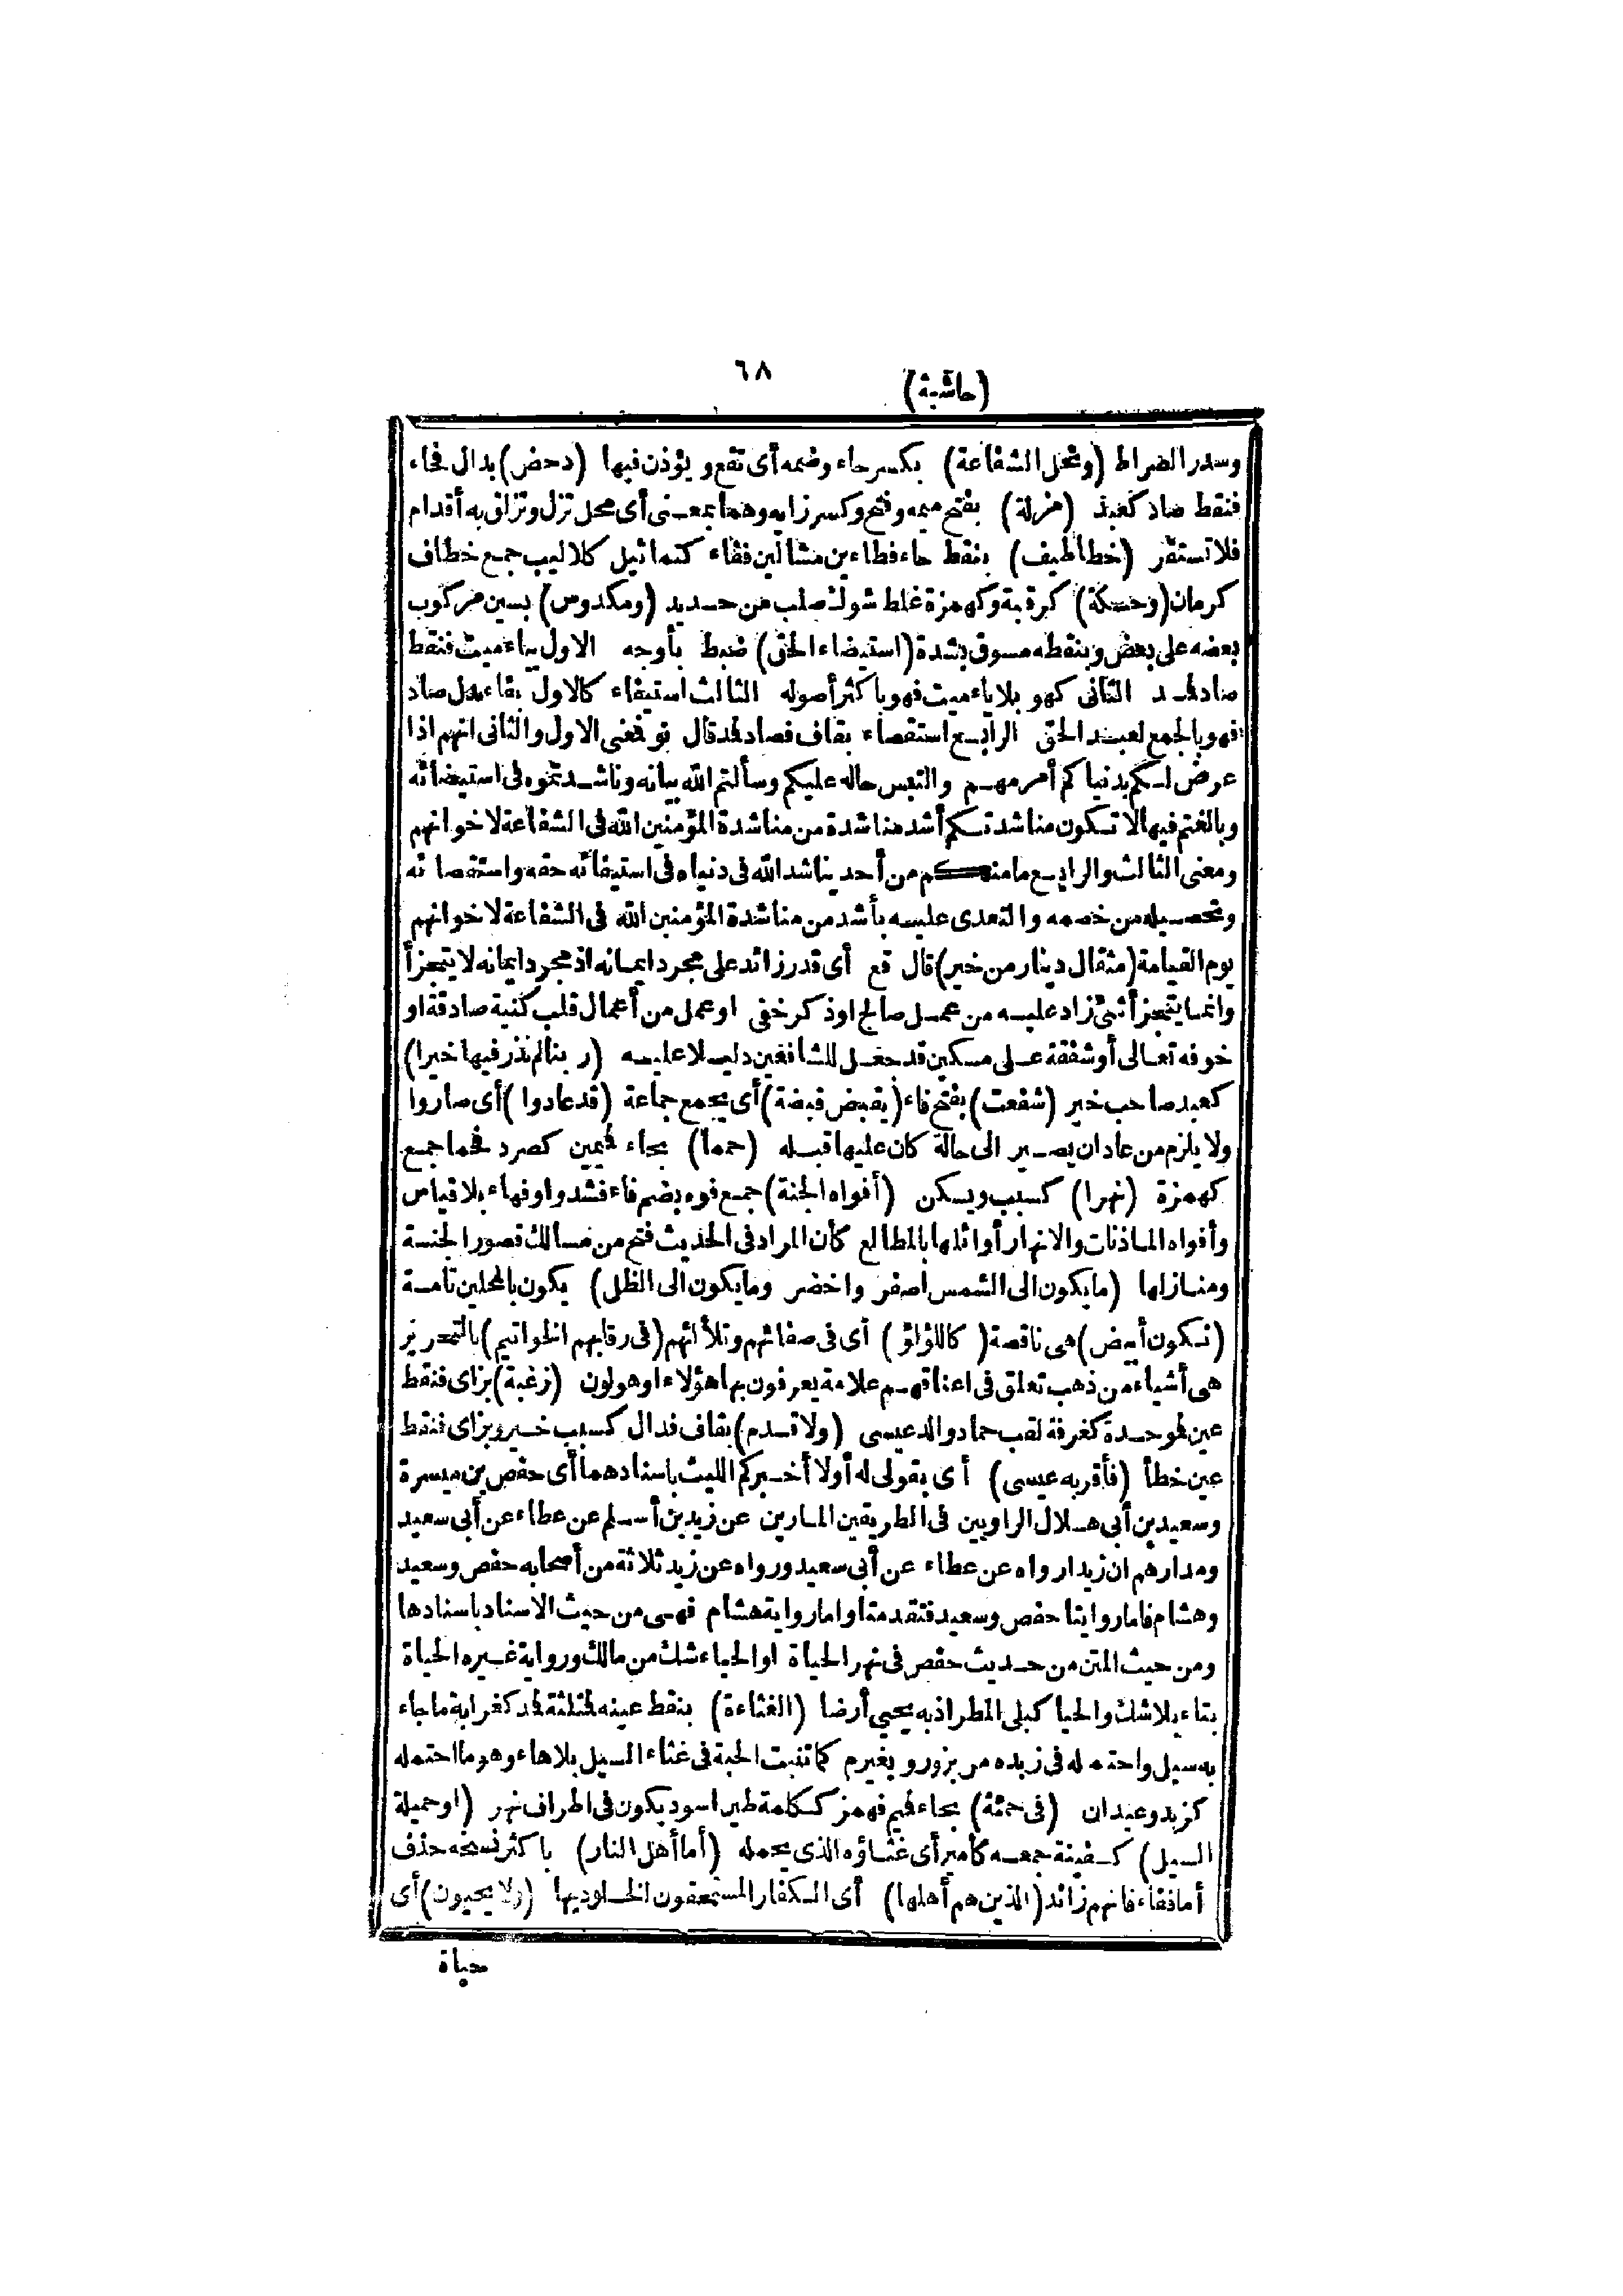 ٦٨
(حاشية)
وسدر الصراط (وتحل الشفاعة) بكسر حاء وضمه أى تقع و يؤذن فيها (دحض) بدال فحاء
فنقط ضاد كعبد (مزلة) بفتح ميمه وفتح وكسر زايه وهما بمعنى أى محل تزل وتزلق به أقدام
فلا تستقر (خطاطيف) بنقط خاء فطاءين مشالين ففاء كتماثيل كلاليب جمع خطاف
كرمان (وحسكة) كرقبة وكهمزة غلط شوك صلب من حديد (ومكدوس) بسين مركوب
بعضه على بعض وبنقطه مسوق بشدة (استيضاء الحق) ضبط بأوجه الاول بياء ميت فنقط
ضاد فمد الثانى كهو بلا ياء ميت فهو باكثر أصوله الثالث استيفاء كالاول بفاء بدل ضاد
فهو بالجمع لعبد الحق الرابع استقصاء بقاف فصاد فمد قال نو فمعنى الاول والثانى انهم اذا
عرض لكم بدنياكم أمر مهم والتبس حاله عليكم وسألتم الله بيانه وناشدتموه فى استيضائه
وبالغتم فيها لا تكون مناشدتكم أشد مناشدة من مناشدة المؤمنين الله فى الشفاعة لاخوانهم
ومعنى الثالث والرابع ما منكم من أحد يناشد الله فى دنياه فى استيفائه حقه واستقصائه
وتحصيله من خصمه والتعدى عليه بأشد من مناشدة المؤمنين الله فى الشفاعة لاخوانهم
يوم القيامة (مثقال دينار من خير) قال قع أى قدر زائد على مجرد ايمانه اذ مجرد ايمانه لا يتجزأ
وانما يتجزأ شئ زاد عليه من عمل صالح اوذكر خفى اوعمل من أعمال قلب كنية صادقة او
خوفه تعالى أو شفقة على مسكين قد جعل للشافعين دليلا عليه (ربنا لم نذر فيها خيرا)
كعبد صاحب خير (شفعت) بفتح فاء (يقبض قبضة) أى يجمع جماعة (قد عادوا) أى صاروا
ولا يلزم من عاد ان يصير الى حالة كان عليها قبله (حمما) بحاء فميمين كصرد فحما جمع
كهمزة (نهرا) كسبب ويسكن (أفواه الجنة) جمع فوه بضم فاء فشد واو فهاء بلا قياس
وأفواه الماذنات والانهار أوائلها بالمطالع كأن المراد فى الحديث فتح من مسالك قصور الجنة
ومنازلها (ما يكون الى الشمس اصفر واخضر وما يكون الى الظل) يكون بالمحلين تامة
(تكون أبيض) هى ناقصة (كاللؤلؤ) أى فى صفائهم وتلألئهم (فى رقابهم الخواتيم) بالتحرير
هى أشياء من ذهب تعلق فى اعناقهم علامة يعرفون بها هؤلاء او هولون (زغبة) بزاى فنقط
عين فموحدة كغرفة لقب حماد والد عيسى (ولا قدم) بقاف فدال كسبب خير وبزاى فنقط
عين خطأ (فأقربه عيسى) أى بقولى له أولا أخبركم الليث باسنادهما أى حفص بن ميسرة
وسعيد بن أبى هلال الراويين فى الطريقين المارين عن زيد بن أسلم عن عطاء عن أبى سعيد
ومدارهم ان زيدا رواه عن عطاء عن أبى سعيد ورواه عن زيد ثلاثة من أصحابه حفص وسعيد
وهشام فاما روايتا حفص وسعيد فتقدمتا واما رواية هشام فهى من حيث الاسناد باسنادها
ومن حيث المتن من حديث حفص فى نهر الحياة اوالحياء شك من مالك ورواية غيره الحياة
بتاء بلا شك والحيا كبلى المطر اذ به يحيى أرضا (الغثاءة) بنقط عينه فمثلثة فمد كغرابة ما جاء
به سيل واحتمله فى زبده من بزور و بغيرم كما تنبت الحبة فى غثاء السيل بلا هاء وهو ما احتمله
كزبد وعيدان (فى حمئة) بحاء فميم فهمز ككلمة طين اسود يكون فى اطراف نهر (اوحميلة
السيل) كسفينة جمعه كامير أى غثاؤه الذى يحمله (أما أهل النار) باكثر نسخه حذف
أما ففاء فانهم زائد (الذين هم أهلها) أى الكفار المستحقون الخلود بها (ولا يحيون) أى
حياة